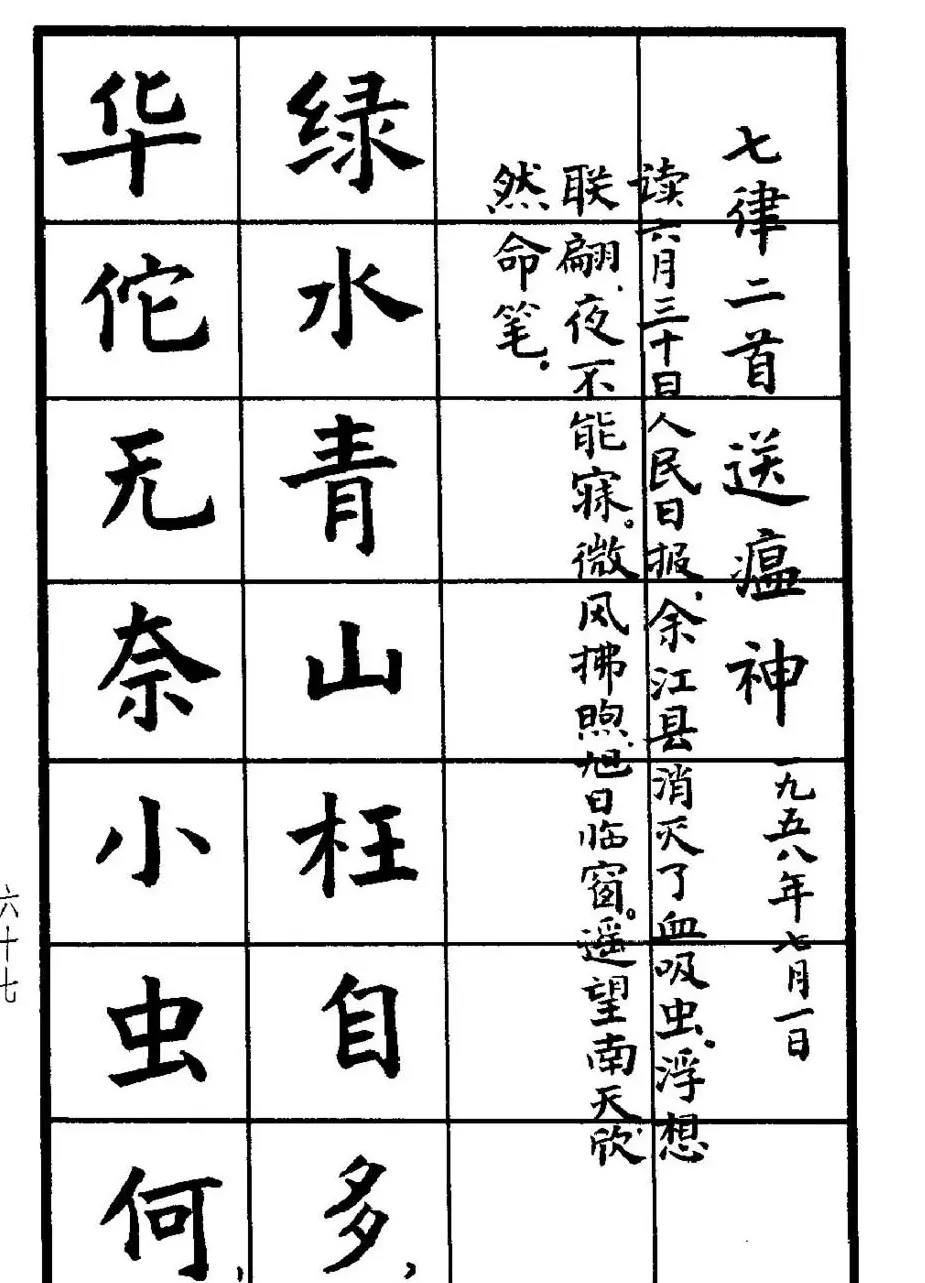 七律二首 送瘟神 一九五八年七月一日
读六月三十日人民日报，余江县消灭了血吸虫。浮想
联翩，夜不能寐。微风拂煦，旭日临窗。遥望南天，欣
然命笔。
绿水青山枉自多，
华佗无奈小虫何，
六十七